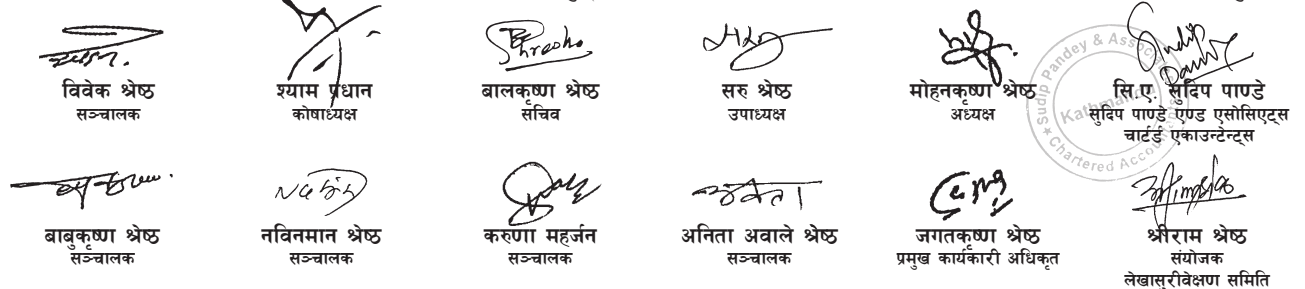 विवेक श्रेष्ठ
सञ्चालक
श्याम प्रधान
कोषाध्यक्ष
बालकृष्ण श्रेष्ठ
सचिव
सरु श्रेष्ठ
उपाध्यक्ष
मोहनकृष्ण श्रेष्ठ
अध्यक्ष
सि.ए. सुदिप पाण्डे
सुदिप पाण्डे एण्ड एसोसिएट्स
चार्टर्ड एकाउन्टेन्ट्स
Sudip Pandey & Associates
Kathmandu
Chartered Accountants
बाबुकृष्ण श्रेष्ठ
सञ्चालक
नविनमान श्रेष्ठ
सञ्चालक
करुणा महर्जन
सञ्चालक
अनिता अवाले श्रेष्ठ
सञ्चालक
जगतकृष्ण श्रेष्ठ
प्रमुख कार्यकारी अधिकृत
श्रीराम श्रेष्ठ
संयोजक
लेखासुरीवेक्षण समिति